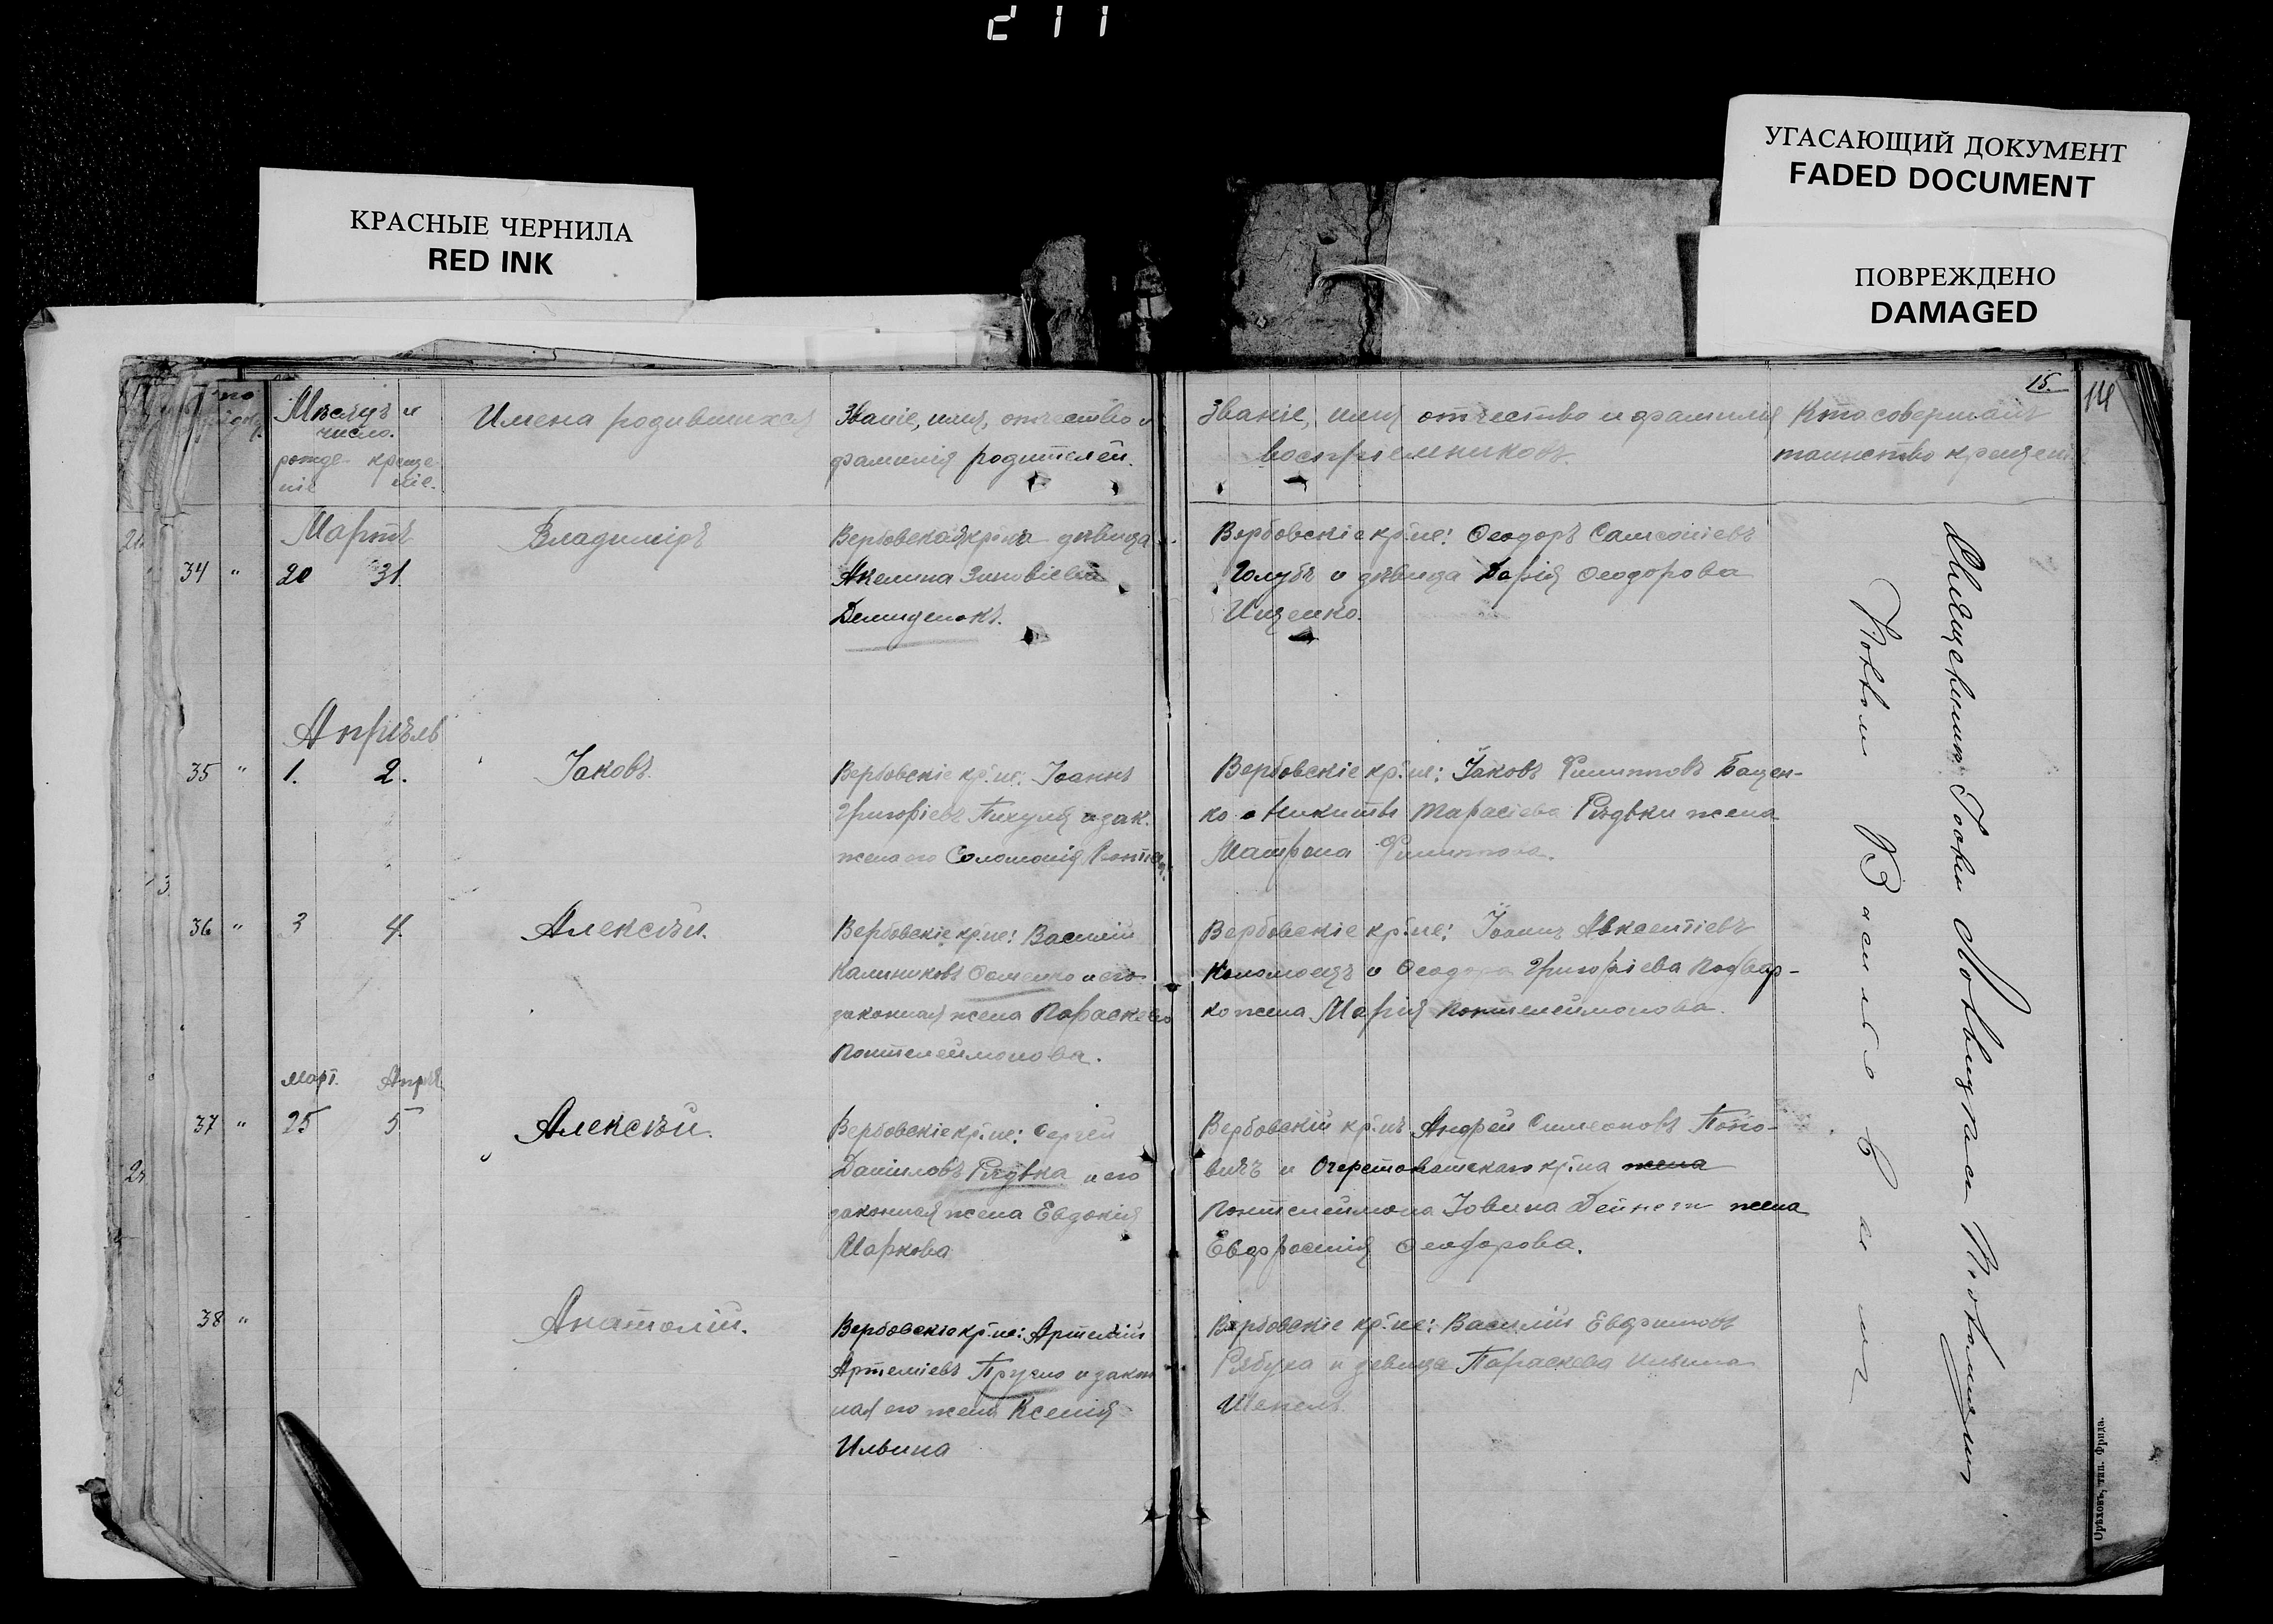 211
КРАСНЫЕ ЧЕРНИЛА
RED INK
УГАСАЮЩИЙ ДОКУМЕНТ
FADED DOCUMENT
ПОВРЕЖДЕНО
DAMAGED
15.
14
Мѣсяцъ и
число.
рожде- креще-
ніе ніе.
Имена родившихся
Званіе, имя, отчество и
фамилія родителей.
Званіе, имя отчество и фамилія
воспріемниковъ.
Кто совершалъ
таинство крещенія
Мартъ
34 " 20 31.
Владиміръ
Вербовская кр-нка дѣвица
Акелина Зиновіева
Демиденокъ.
Вербовскіе кр-не: Ѳеодоръ Самсоніевъ
Голубъ и дѣвица Дарія Ѳеодорова
Ищенко.
Апрѣль
35 " 1. 2.
Іаковъ.
Вербовскіе кр-не: Іоаннъ
Григоріевъ Пихуля и зак.
жена его Соломонія
Вербовскіе кр-не: Іаковъ Филипповъ Бацен-
ко и Никиты Тарасіева Рѣдьки жена
Матрона Филиппова.
36 " 3 4.
Алексѣй.
Вербовскіе кр-не: Василій
Калиниковъ и его
законная жена Параскева
Понтелеймонова.
Вербовскіе кр-не: Іоаннъ Авксентіевъ
Коломоецъ и Ѳеодора Григоріева Подвар-
ко жена Марія Понтелеймонова.
Март. Апрѣл.
37 " 25 5
Алексѣй.
Вербовскіе кр-не: Сергей
Даніиловъ Рѣдька и его
законная жена Евдокія
Маркова
Вербовскій кр-нъ Андрей Симеоновъ Попо-
вичъ и Очеретоватскаго кр-на жена
Понтелеймона Іовина Дейнеги жена
Евфросинія Ѳеодорова.
38 "
Анатолій.
Вербовскіе кр-не: Артемій
Артеміевъ Пругло и закон
ная его жена Ксенія
Ильина
Вербовскіе кр-не: Василій Евфимовъ
Рябуха и девица Параскева Ильина
Шепель.
Священникъ
Орѣховъ, тип. Фрида.